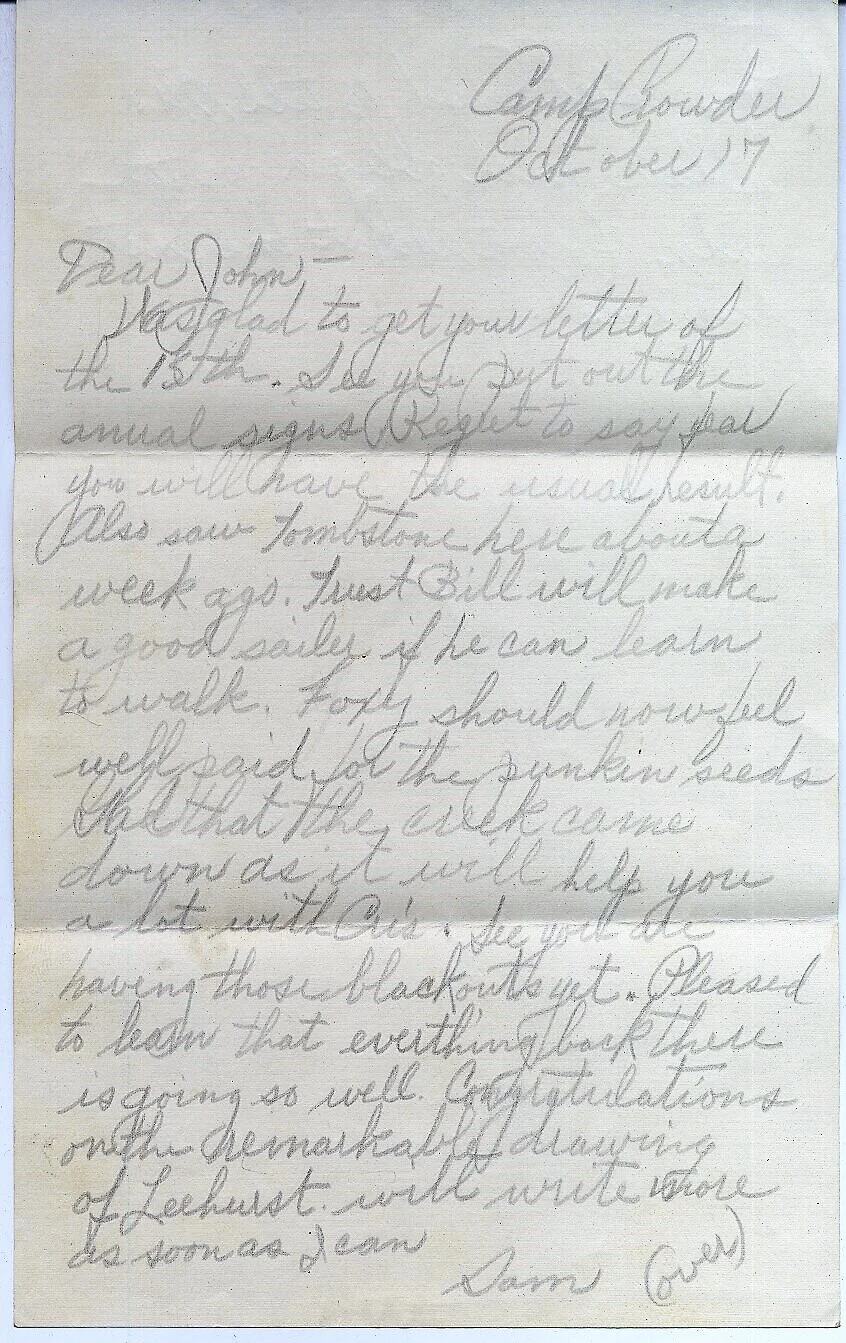 Camp Crowder
October 17
Dear John —
Was glad to get your letter of
the 13th. See you put out the
anual signs Regret to say fear
you will have the usual result.
Also saw Tombstone here about a
week ago. Trust Bill will make
a good sailer if he can learn
to walk. Foxy should now feel
well paid for the punkin seeds
Glad that the creek came
down as it will help you
a lot with See you are
having those blackouts yet. Pleased
to learn that everthing back there
is going so well. Congratulations
on the remarkable drawing
of Leehurst. will write more
as soon as I can
Sam (over)